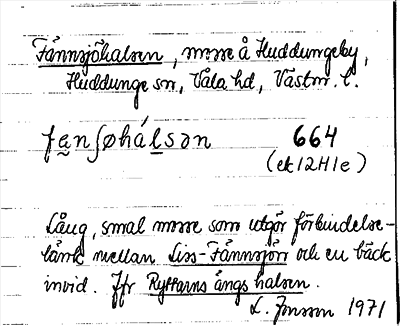 Fännsjöhalsen, mosse å Huddungeby,
Huddunge sn, Våla hd, Västm. l.
fa̰nʃøhálsən 664
(ek 12H1e)
Lång, smal mosse som utgör förbindelse-
länk mellan Liss-Fännsjön och en bäck
invid. Jfr Ryttarns ängs halsen.
L. Jonsson 1971